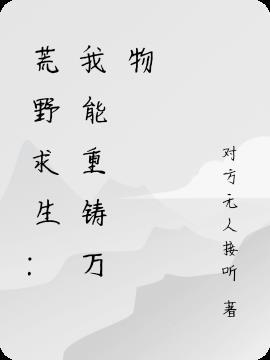 荒野求生：
我能重铸万
物
对方无人接听 著